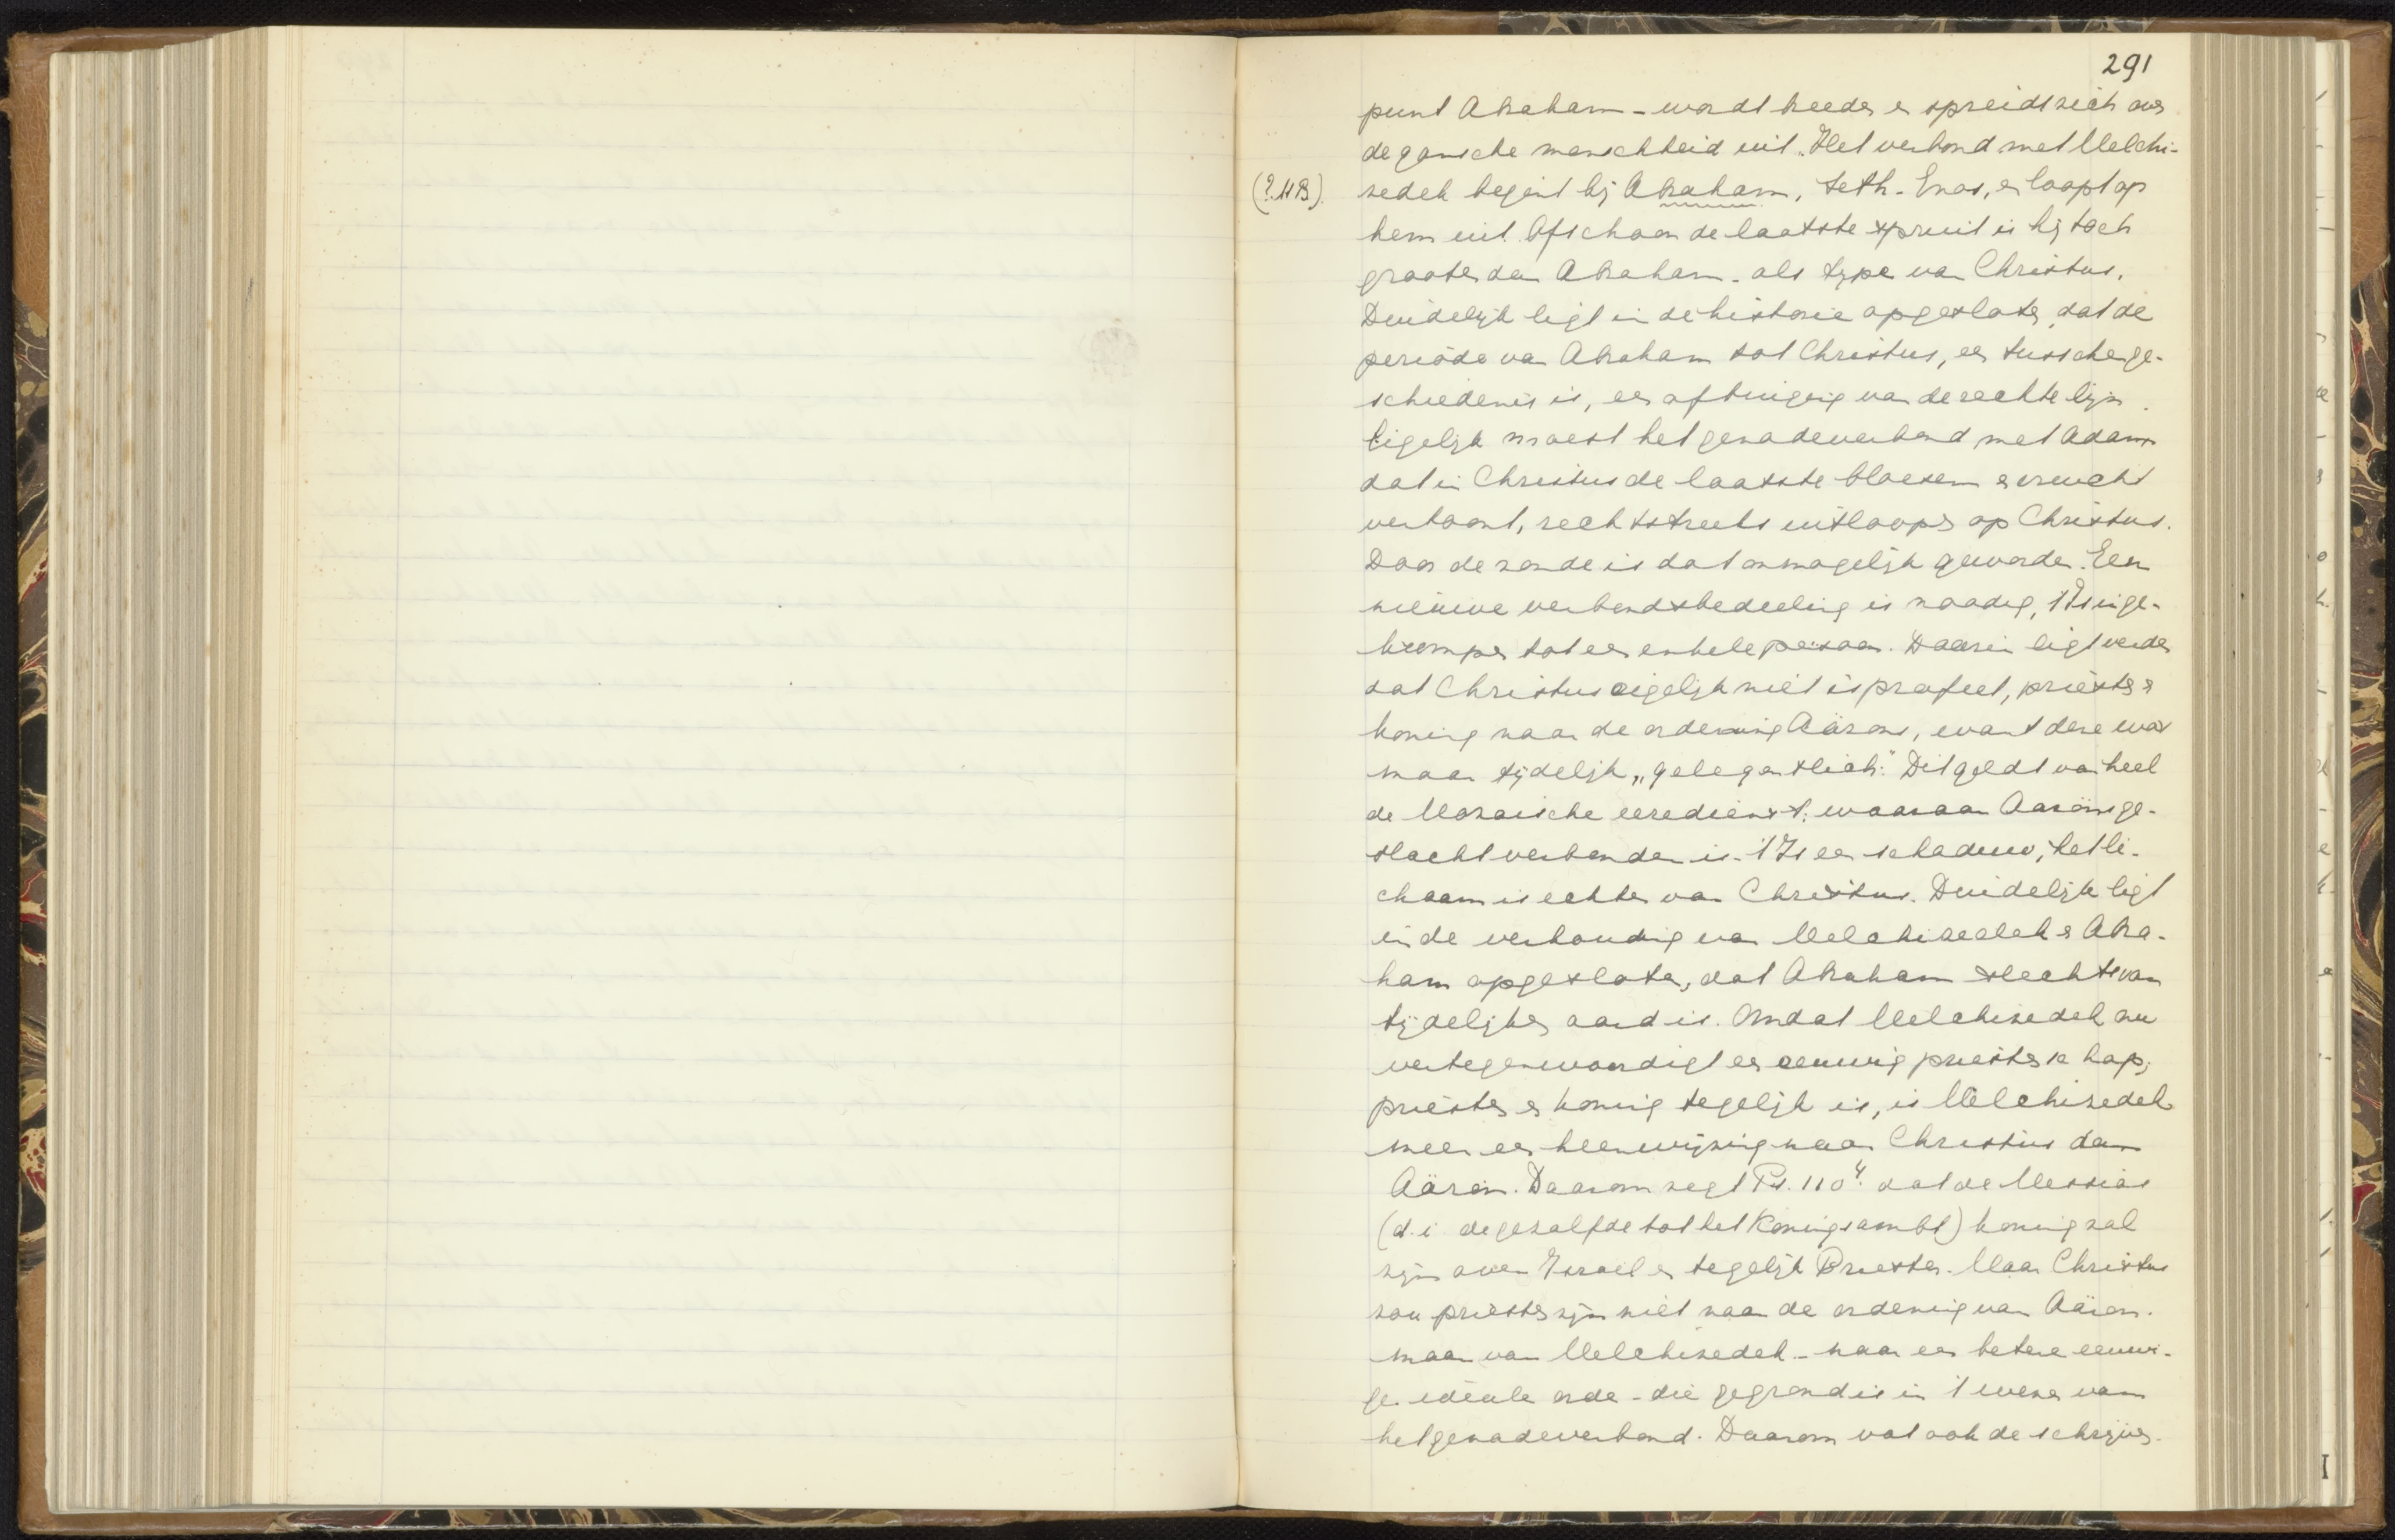 291
punt Abraham - wordt breeder en spreidt zich over
de gansche menschheid uit. Het verbond met Melchi-
(?.HB). zedek begint bij Abraham, Seth - Enos, en loopt op
hem uit. Ofschoon de laatste spruit is hij toch
grooter dan Abraham - als type van Christus.
Duidelijk ligt in de historie opgesloten, dat de
periode van Abraham tot Christus, een tusschenge-
schiedenis is, een afbuiging van de rechte lijn.
Eigelijk moest het genadeverbond met Adam
dat in Christus de laatste bloesem en vrucht
vertoont, rechtstreeks uitloopen op Christus.
Door de zonde is dat onmogelijk geworden. Een
nieuwe verbondsbedeeling is noodig, 't Is inge-
krompen tot een enkele persoon. Daarin ligt verder
dat Christus eigelijk niet is profeet, priester en
koning naar de ordening Aärons, want deze was
maar tijdelijk „gelegentlich." Dit geldt van heel
de Mozaische eeredienst, waaraan Aarons ge-
slacht verbonden is. 't Is een schaduw, het li-
chaam is echter van Christus. Duidelijk ligt
in de verhouding van Melchizedek en Abra-
ham opgesloten, dat Abraham slechts van
tijdelijken aard is. Omdat Melchizedek nu
vertegenwoordigt een eeuwig priesterschap,
priester en koning tegelijk is, is Melchizedek
meer een heenwijzing naar Christus dan
Aäron. Daarom zegt Ps. 110⁴. dat de Messias
(d.i. de gezalfde tot het Koningsambt) koning zal
zijn over Israel en tegelijk Priester. Maar Christus
zou priester zijn niet naar de ordening van Aäron.
maar van Melchizedek - naar een betere eeuwi-
ge ideale orde - die gegrond is in 't wezen van
het genadeverbond. Daarom vat ook de schrijver